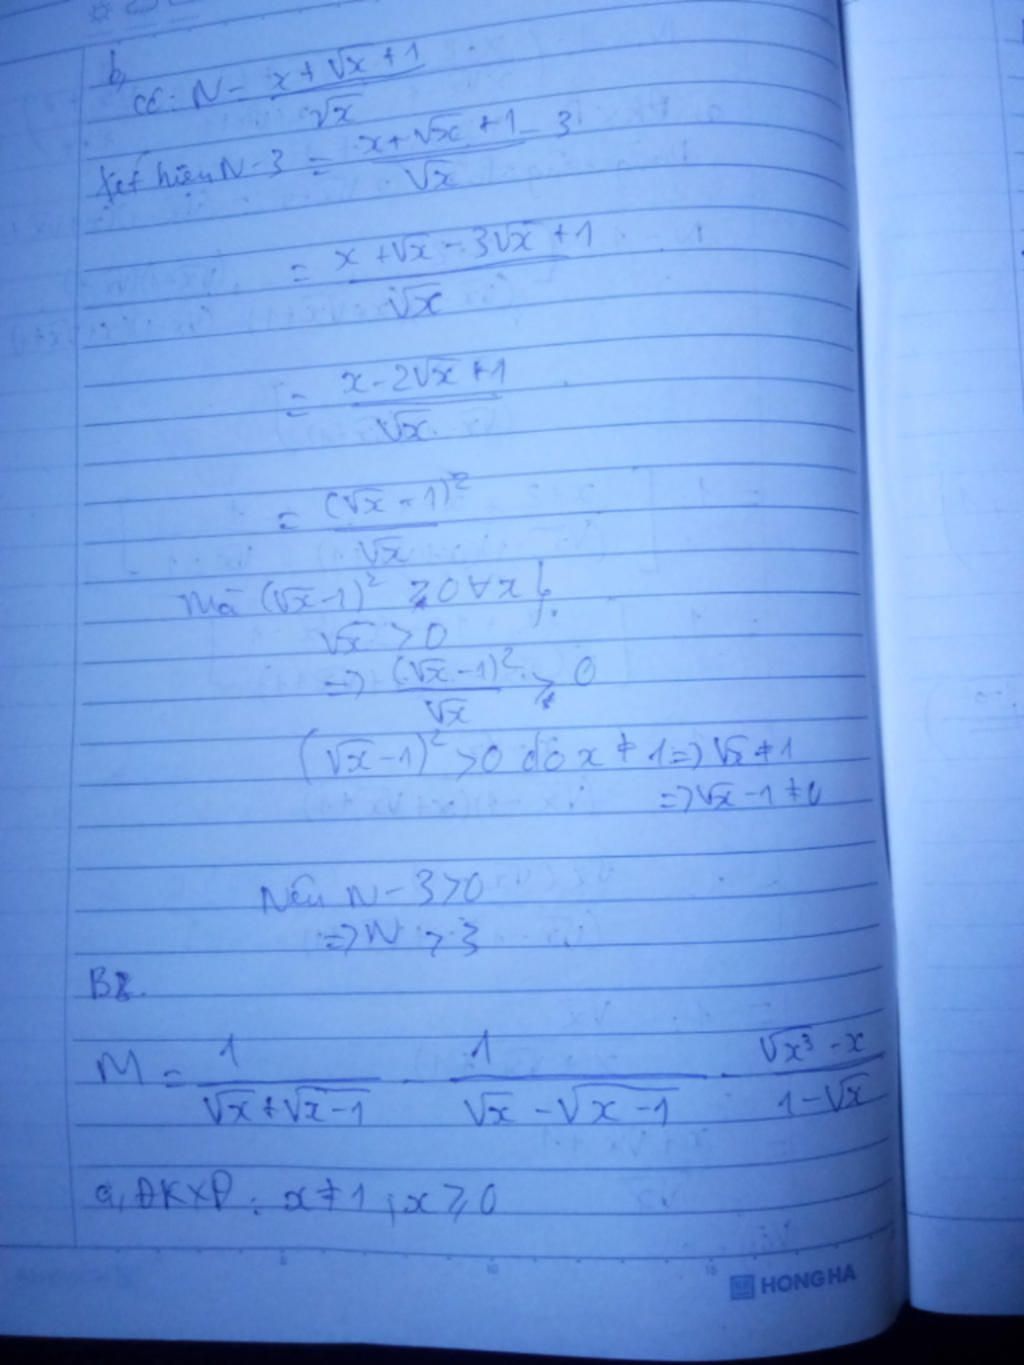 b,
có: N = \frac{x+\sqrt{x}+1}{\sqrt{x}}
Xét hiệu N-3 = \frac{x+\sqrt{x}+1}{\sqrt{x}} - 3
= \frac{x+\sqrt{x}-3\sqrt{x}+1}{\sqrt{x}}
= \frac{x-2\sqrt{x}+1}{\sqrt{x}}
= \frac{(\sqrt{x}-1)^2}{\sqrt{x}}
Mà (\sqrt{x}-1)^2 ≥ 0 ∀x
\sqrt{x} > 0
=> \frac{(\sqrt{x}-1)^2}{\sqrt{x}} ≥ 0
(\sqrt{x}-1)^2 > 0 do x ≠ 1 => \sqrt{x} ≠ 1
=> \sqrt{x} - 1 ≠ 0
Nên N - 3 > 0
=> N > 3
B2.
M = \frac{1}{\sqrt{x}+\sqrt{x-1}} - \frac{1}{\sqrt{x}-\sqrt{x-1}} - \frac{\sqrt{x^3}-x}{1-\sqrt{x}}
a, ĐKXĐ: x ≠ 1; x ≥ 0
HONG HA